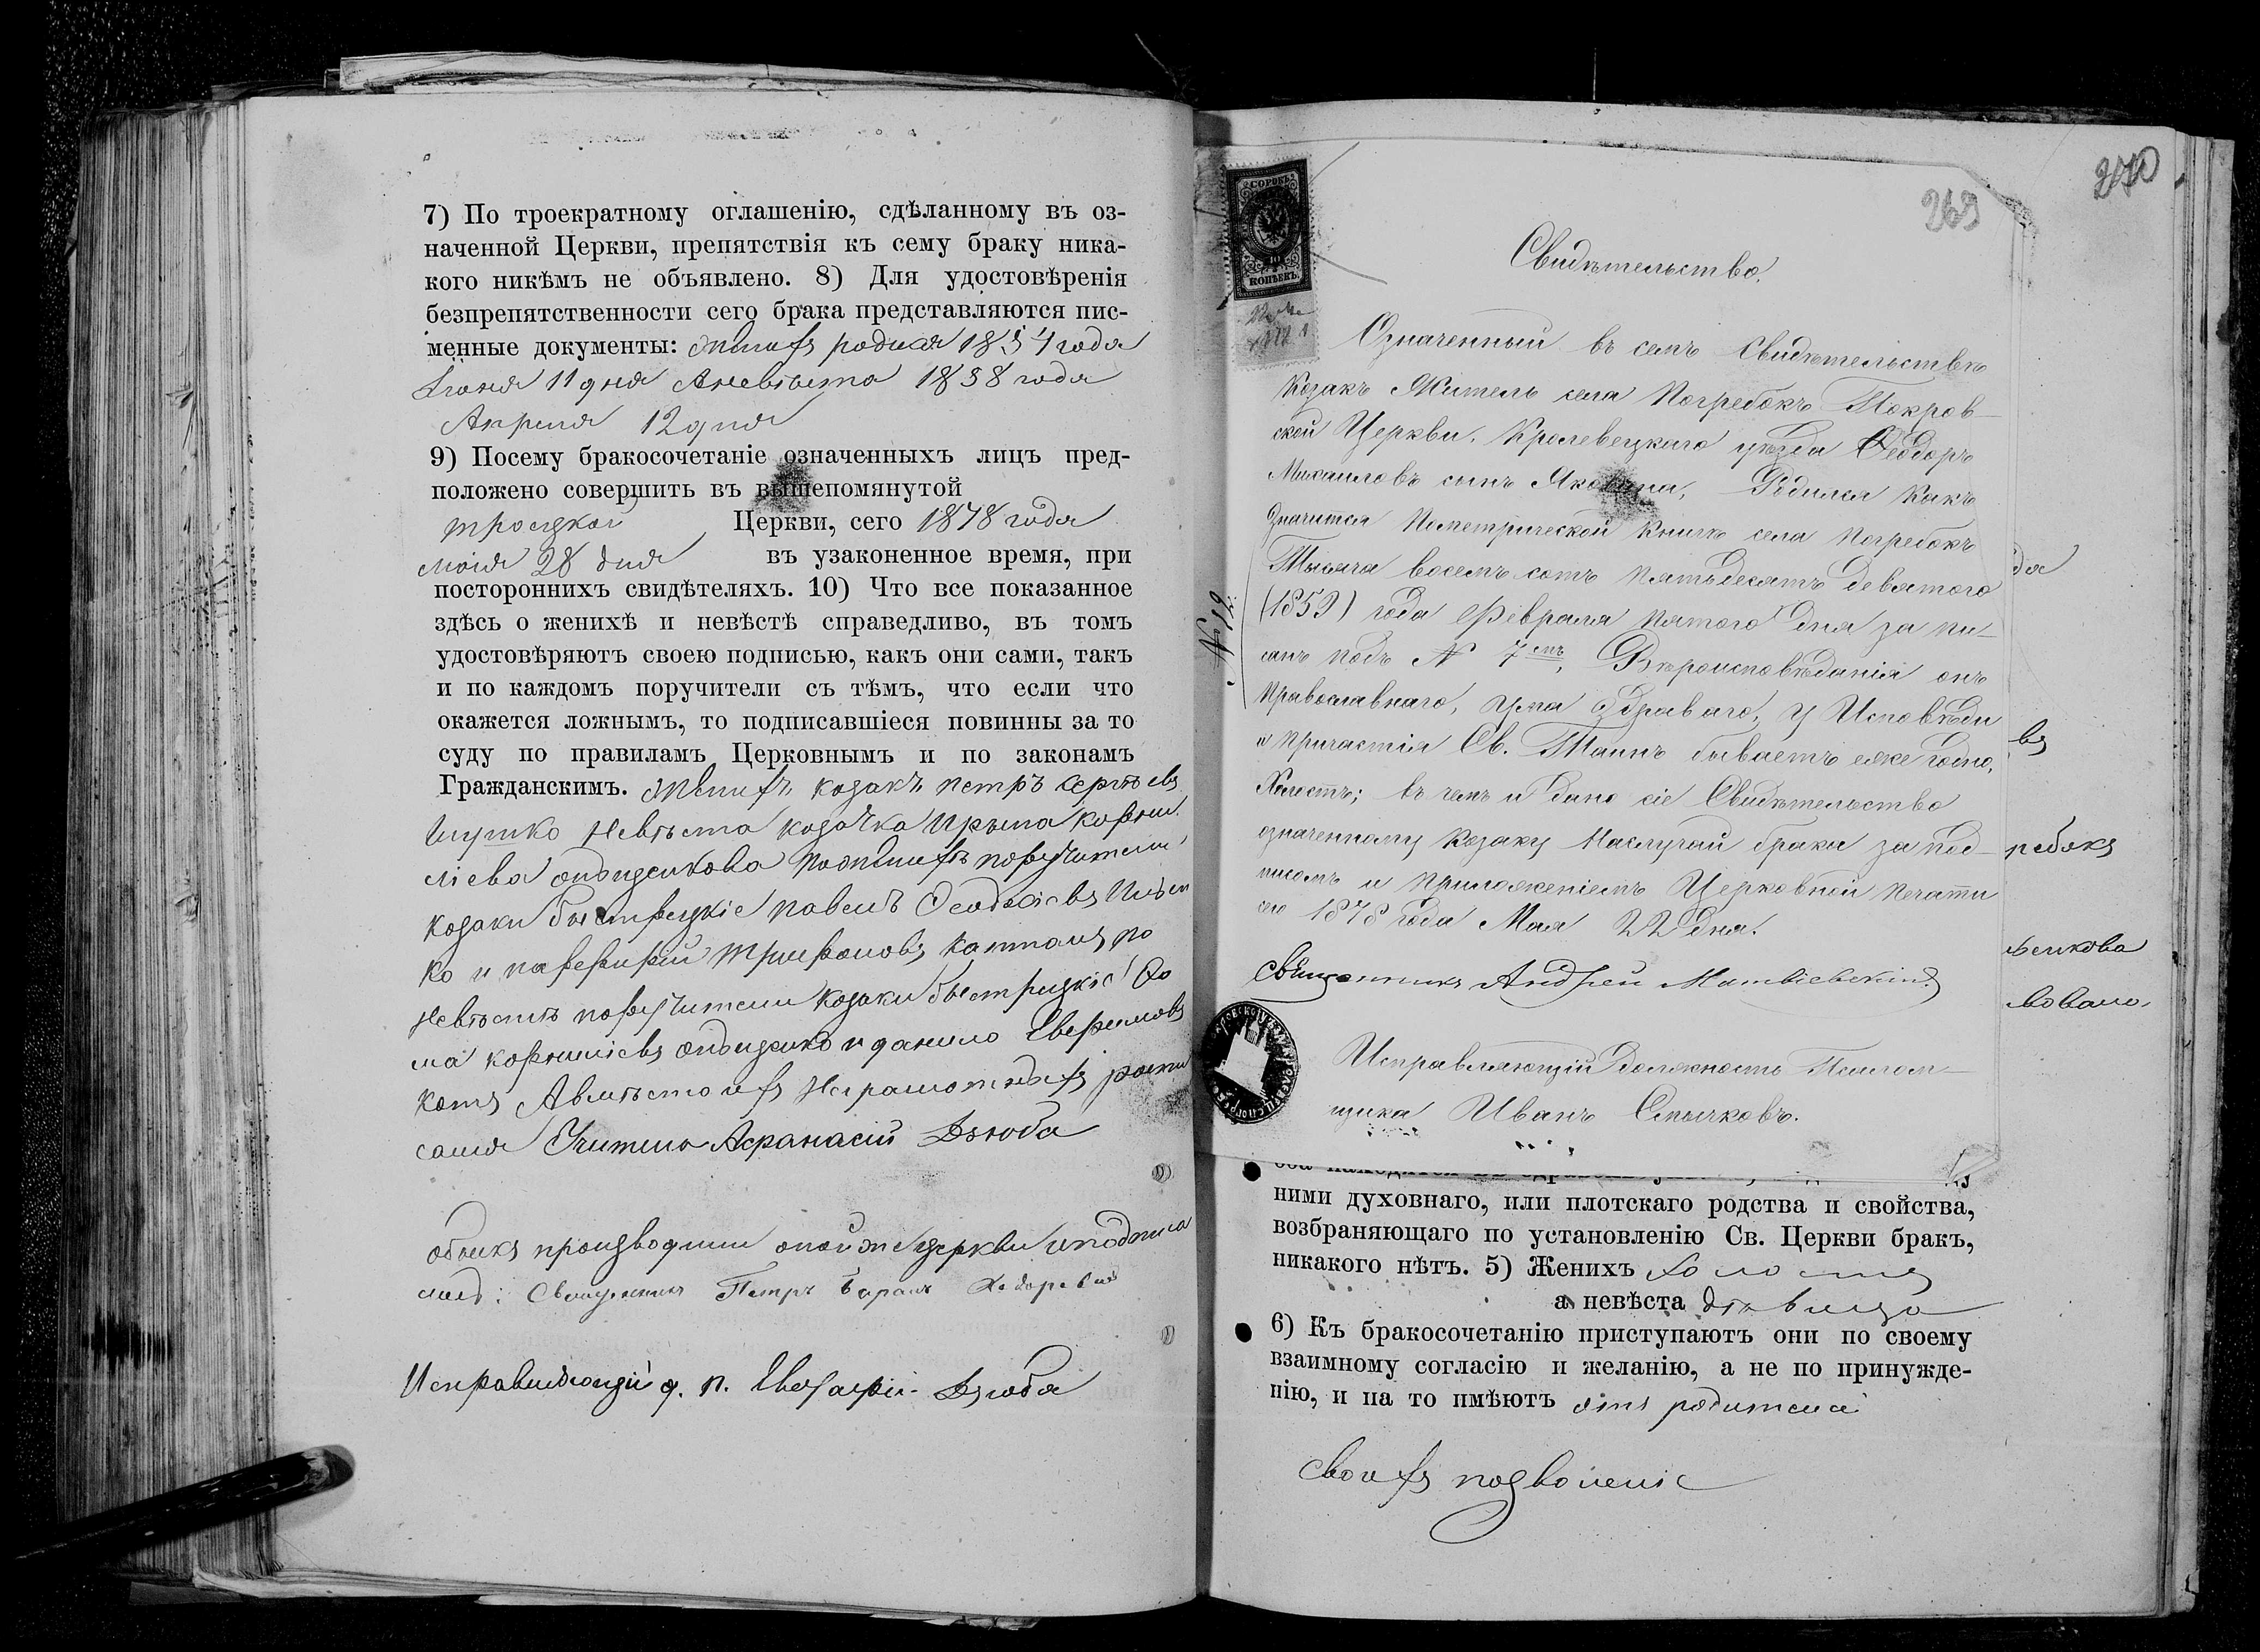 7) По троекратному оглашенію, сдѣланному въ оз-
наченной Церкви, препятствія къ сему браку ника-
кого никѣмъ не объявлено. 8) Для удостовѣренія
безпрепятственности сего брака представляются пис-
менные документы: родися года
11 дня Аневѣста года
Апреля 12 дня
9) Посему бракосочетаніе означенныхъ лицъ пред-
положено совершить въ вышепомянутой
троицкой Церкви, сего 1878 года
28 дня въ узаконенное время, при
постороннихъ свидѣтеляхъ. 10) Что все показанное
здѣсь о женихѣ и невѣстѣ справедливо, въ томъ
удостовѣряютъ своею подписью, какъ они сами, такъ
и по каждомъ поручители съ тѣмъ, что если что
окажется ложнымъ, то подписавшіеся повинны за то
суду по правиламъ Церковнымъ и по законамъ
Гражданскимъ. Женихъ козакъ петръ сергѣевъ
невѣста козачка корни
ліева поженихѣ поручители
козаки быстрецкіе павелъ
ко и Трифоновъ по
невѣстѣ поручители козаки быстрецкіе
ма корниліевъ и данило
Авмѣсто ихъ неграмотныхъ
Учитель Афанасій Дзюба
обыскъ производили оной же церкви иподписа
Священникъ Петръ
Исправляющій д. п. Дзюба
270
269
СОРОКЪ
КОПѢЕКЪ.
Свидѣтельство.
Означенный въ семъ Свидѣтельствѣ
Козакъ Житель села Погребокъ Покров-
ской Церкви, Кролевецкаго уѣзда Феодоръ
Михаиловъ сынъ Родился какъ
Значится Пометрической Книгѣ села Погребокъ
Тысяча восемь сотъ пятьдесятъ девятого
(1859) года Февраля пятого дня за пи-
санъ подъ № 7мъ, Вѣроисповѣданія онъ
Православнаго, ума Здраваго, у Исповѣди
и Причастія Св. Таинъ бываетъ еже годно,
Холостъ; въ чемъ и дано сіе Свидѣтельство
означенному Козаку Наслучай брака за под-
писомъ и приложеніемъ Церковной печати
сего 1878 года Мая 22 дня.
Священникъ Андрей Матвіевскій
Исправляющій должность Псалом-
щика Иванъ Смычковъ.
№ 12
да
въ
ребокъ
ними духовнаго, или плотскаго родства и свойства,
возбраняющаго по установленію Св. Церкви бракъ,
никакого нѣтъ. 5) Женихъ холостъ
а невѣста дѣвица
6) Къ бракосочетанію приступаютъ они по своему
взаимному согласію и желанію, а не по принужде-
нію, и на то имѣютъ отъ родителей
своихъ позволеніе